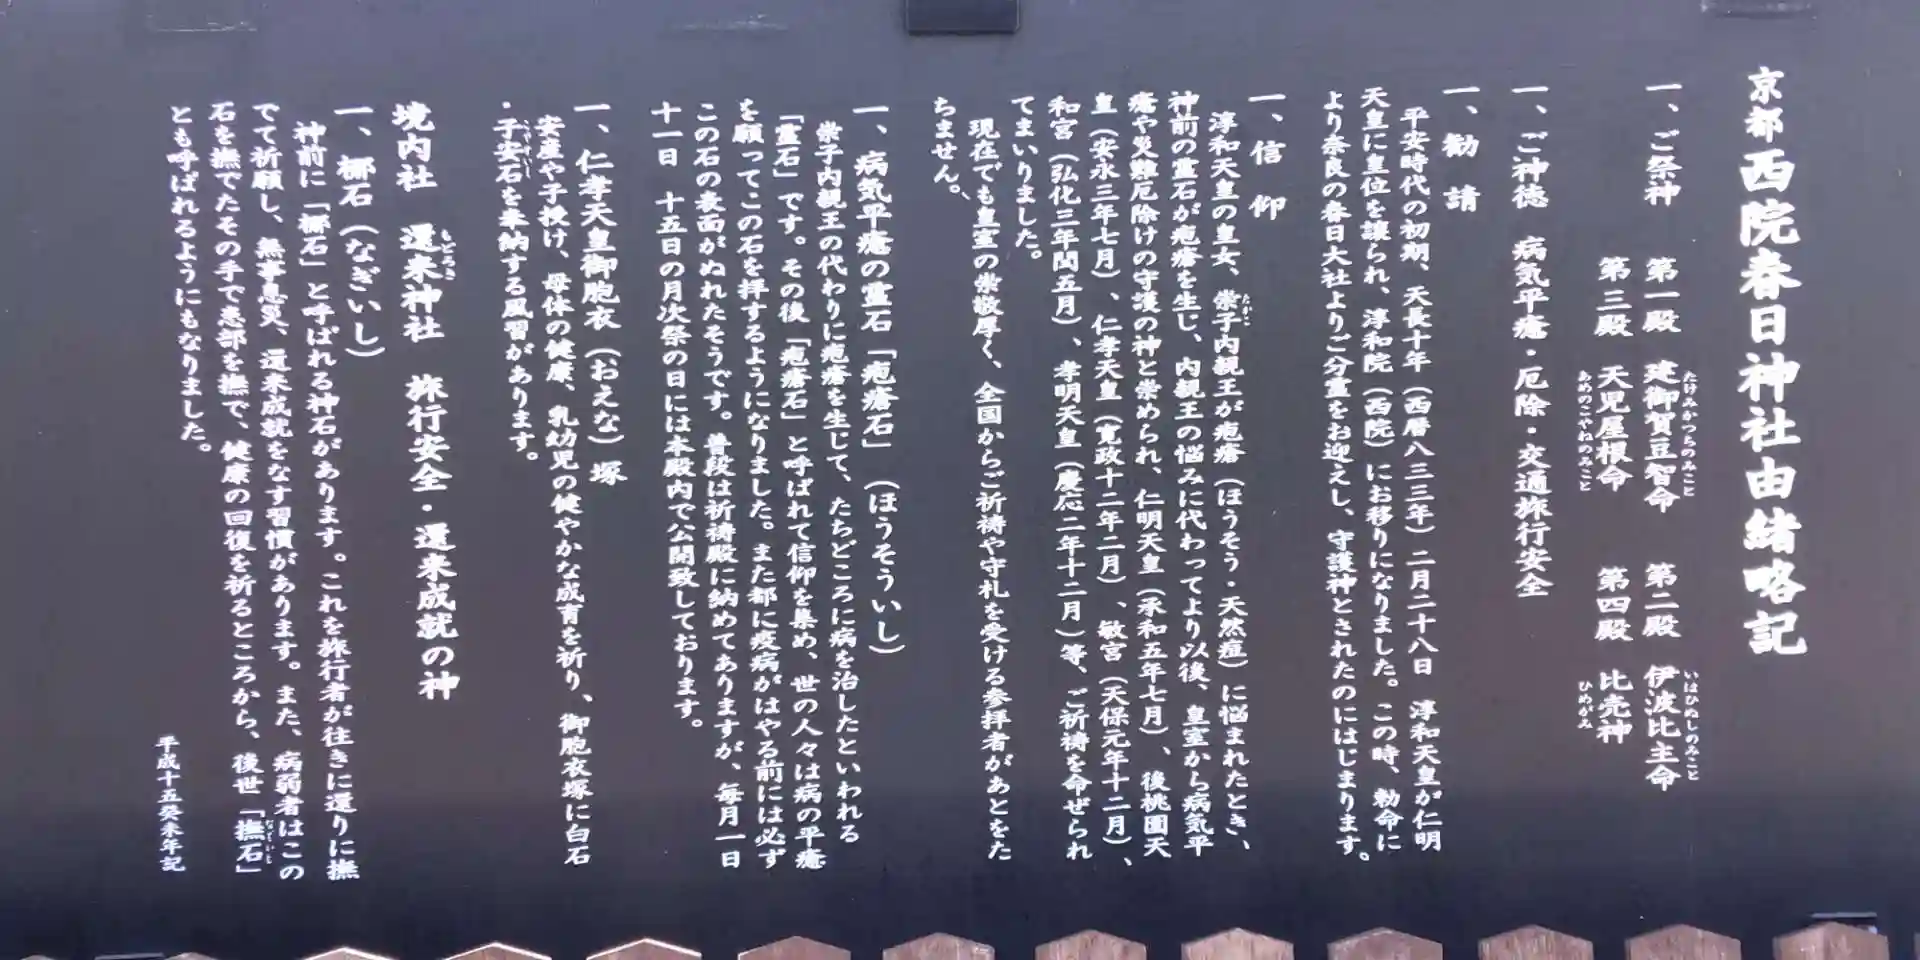 京都 西院春日神社由緒略記
一、ご祭神 第一殿 建御賀豆智命 第二殿 伊波比主命
たけみかつちのみこと いはひぬしのみこと
第三殿 天児屋根命 第四殿 比売神
あめのこやねのみこと ひめがみ
一、ご神徳 病気平癒・厄除・交通旅行安全
一、勧請
平安時代の初期、天長十年（西暦八三三年）二月二十八日 淳和天皇が仁明
天皇に皇位を譲られ、淳和院（西院）にお移りになりました。この時、勅命に
より奈良の春日大社よりご分霊をお迎えし、守護神とされたのにはじまります。
一、信仰
淳和天皇の皇女、崇子内親王が疱瘡（ほうそう・天然痘）に悩まれたとき、
たかこ
神前の霊石が疱瘡を生じ、内親王の悩みに代わってより以後、皇室から病気平
癒や災難厄除けの守護の神と崇められ、仁明天皇（承和五年七月）、後桃園天
皇（安永三年七月）、仁孝天皇（寛政十二年二月）、敏宮（天保元年十二月）、
和宮（弘化三年閏五月）、孝明天皇（慶応二年十二月）等、ご祈祷を命ぜられ
てまいりました。
現在でも皇室の崇敬厚く、全国からご祈祷や守札を受ける参拝者があとをた
ちません。
一、病気平癒の霊石「疱瘡石」（ほうそういし）
崇子内親王の代わりに疱瘡を生じて、たちどころに病を治したといわれる
「霊石」です。その後「疱瘡石」と呼ばれて信仰を集め、世の人々は病の平癒
を願ってこの石を拝するようになりました。また都に疫病がはやる前には必ず
この石の表面がぬれたそうです。普段は祈祷殿に納めてありますが、毎月一日
十一日 十五日の月次祭の日には本殿内で公開致しております。
一、仁孝天皇御胞衣（おえな）塚
安産や子授け、母体の健康、乳幼児の健やかな成育を祈り、御胞衣塚に白石
・子安石を奉納する風習があります。
こやすいし
境内社 還来神社 旅行安全・還来成就の神
もどろき
一、梛石（なぎいし）
神前に「梛石」と呼ばれる神石があります。これを旅行者が往きに還りに撫
でて祈願し、無事息災、還来成就をなす習慣があります。また、病弱者はこの
石を撫でたその手で患部を撫で、健康の回復を祈るところから、後世「撫石」
なでいし
とも呼ばれるようにもなりました。
平成十五癸未年記